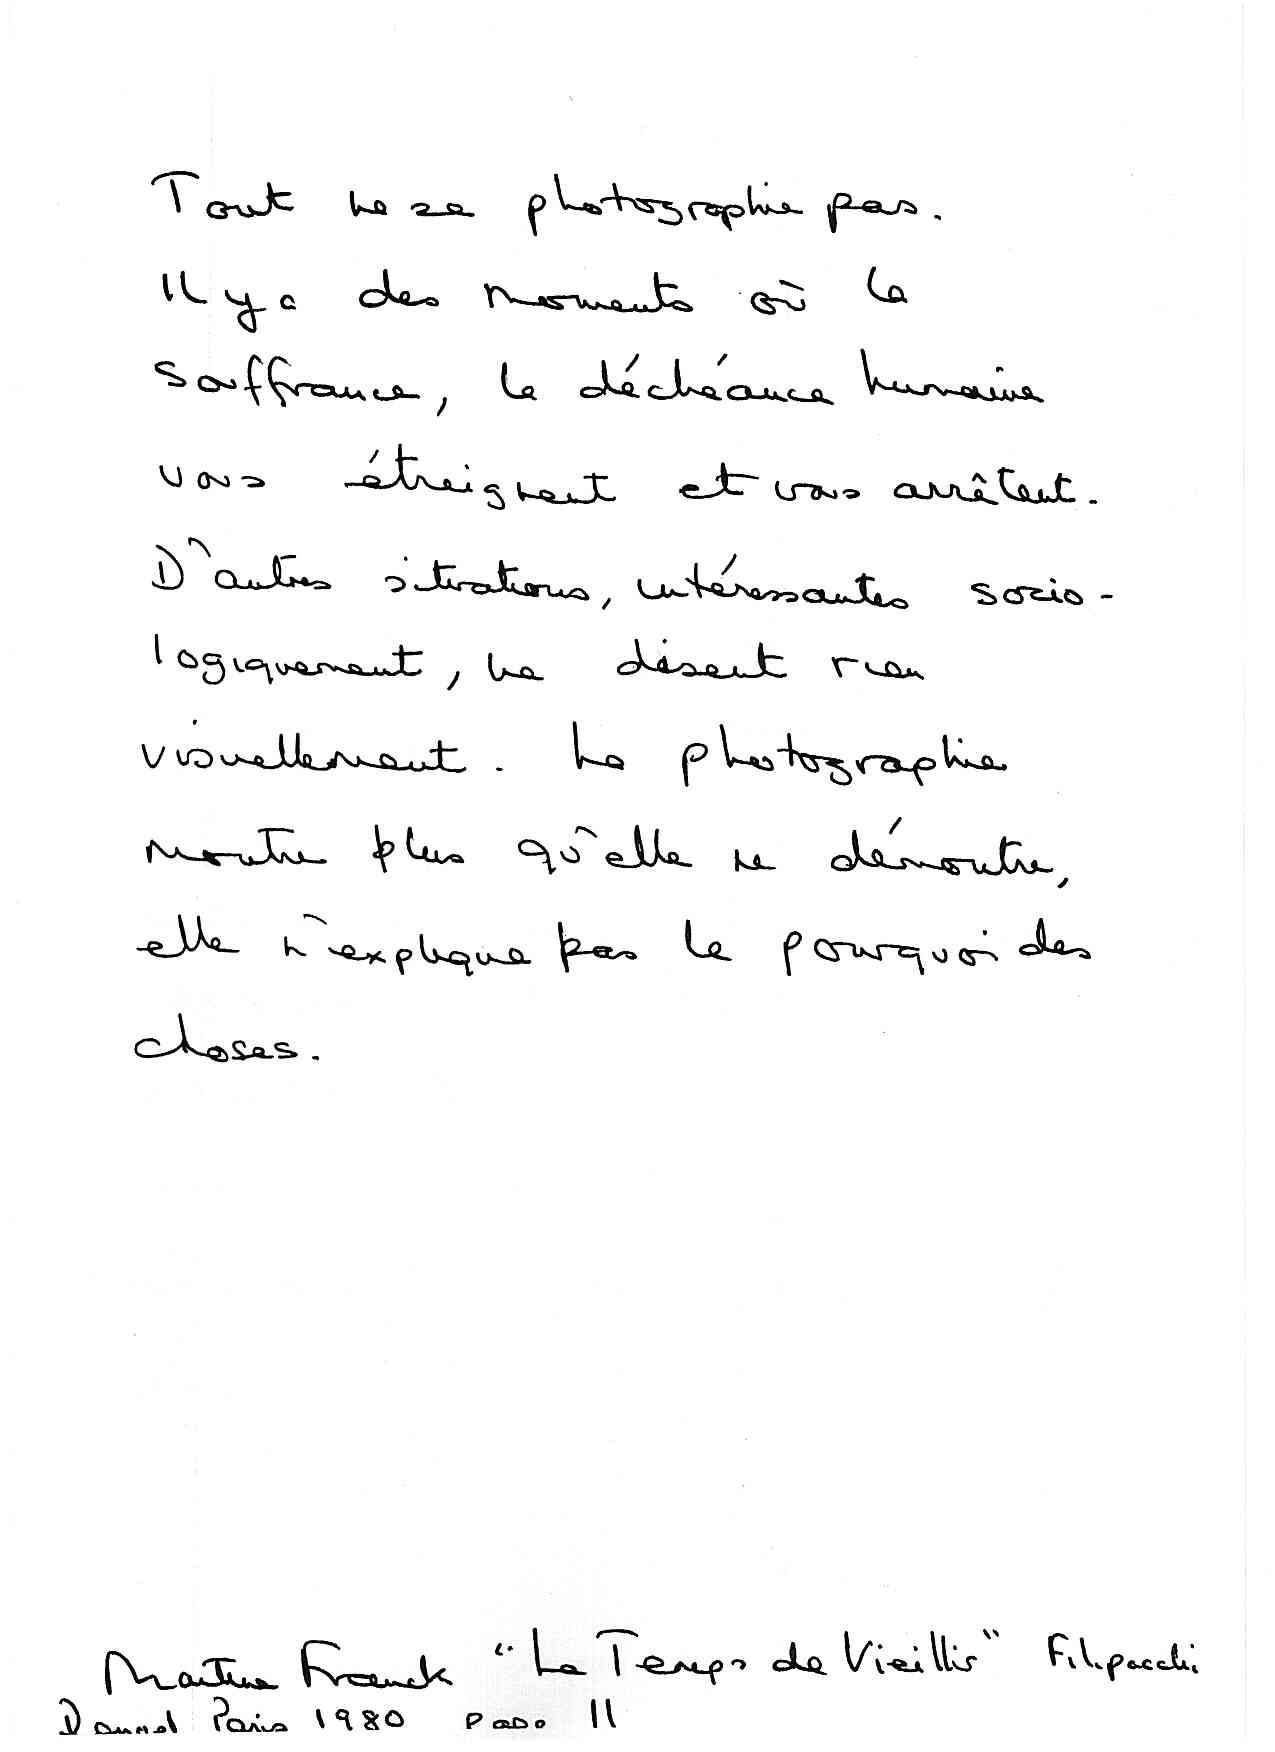 Tout ne se photographie pas.
Il y a des moments où la
souffrance, la déchéance humaine
vous étreignent et vous arrêtent.
D'autres situations, intéressantes socio-
logiquement, ne disent rien
visuellement. La photographie
montre plus qu'elle ne démontre,
elle n'explique pas le pourquoi des
choses.
Martine Franck "Le Temps de Vieillir" Filipacchi
Denoel Paris 1980 page 11